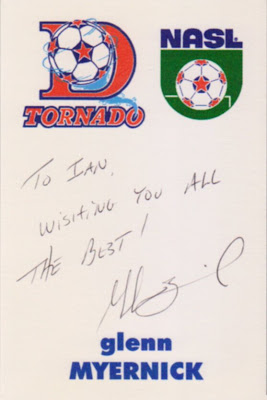 D
TORNADO
NASL
TO IAN,
WISHING YOU ALL
THE BEST!
glenn
MYERNICK